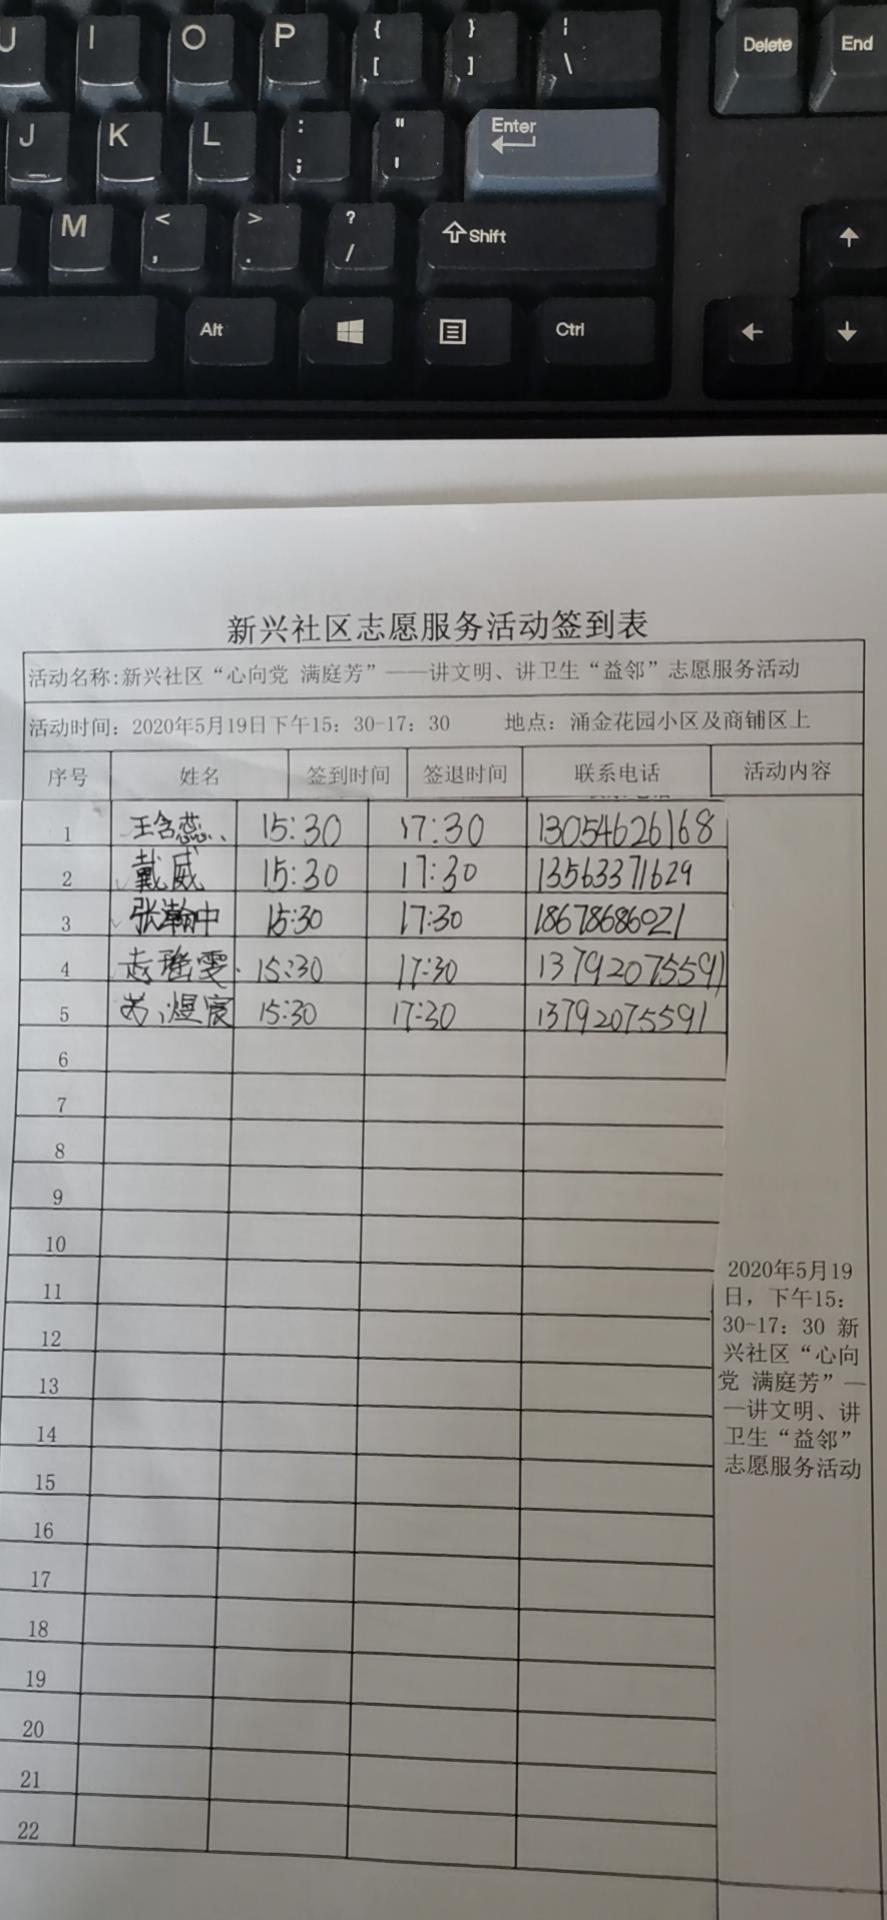 U I O P { [ } ] ¦ \ Delete End
J K L : ; " ' Enter
M < , > . ? / Shift
Alt Ctrl
新兴社区志愿服务活动签到表
活动名称:新兴社区“心向党 满庭芳”——讲文明、讲卫生“益邻”志愿服务活动
活动时间：2020年5月19日下午15：30-17：30 地点：涌金花园小区及商铺区上
序号 姓名 签到时间 签退时间 联系电话 活动内容
1 王含蕊 15:30 17:30 13054626168
2 戴威 15:30 17:30 13563371629
3 张瀚中 15:30 17:30 18678686021
4 15:30 17:30 13792075591
5 15:30 17:30 13792075591
6
7
8
9
10
11
12
13
14
15
16
17
18
19
20
21
22
2020年5月19
日，下午15：
30-17：30 新
兴社区“心向
党 满庭芳”—
—讲文明、讲
卫生“益邻”
志愿服务活动